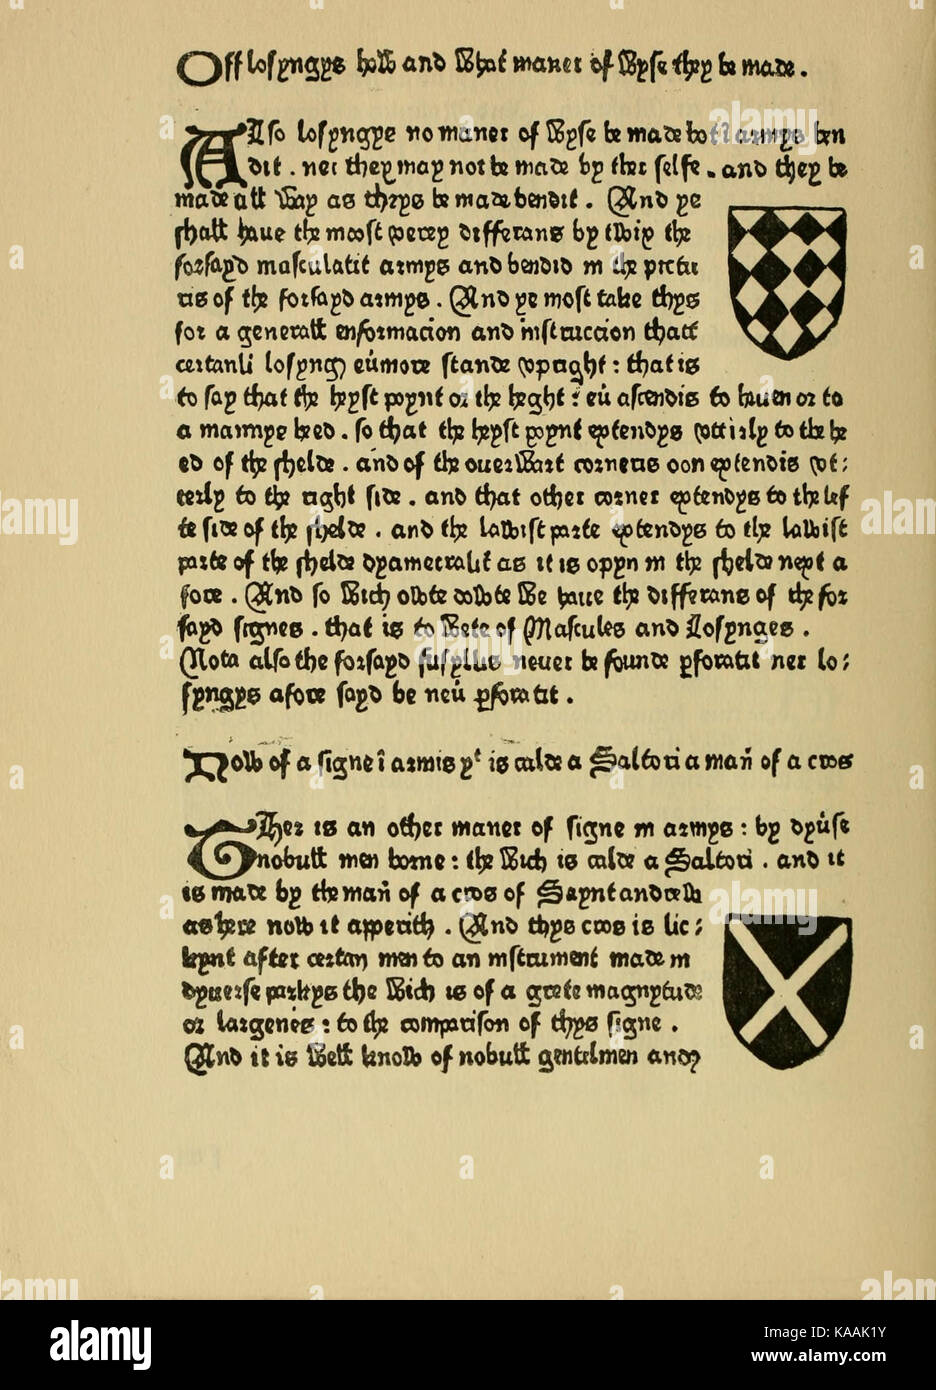 Off losyngys how and What maner of Wyse they be made.
Also losyngye no maner of Wyse be made bot armys ben
dit. ner they may not be made by ther selfe. and they be
made all Way as thyys be made bendit. And ye
shall haue the moost verey differans by twix the
forsayd masculatit armys and bendid in the pictu
ris of the forsayd armys. And ye most take thys
for a generall enformacion and instruccion thatt
certanli losyng eūmore stande vpright: that is
to say that the heyst poynt or the heght: eū ascendis to heuen or to
a mannys heed. so that the heyst poynt extendys vttirly to the he
ed of the shelde. and of the ouerWart corneris oon extendis vt;
terly to the right side. and that other corner extendys to the lef
te side of the shelde. and the lawist parte extendys to the lawist
parte of the shelde dyametralit as it is oppyn in the shelde next a
fore. And so Wich We haue the differans of the for
sayd signes. that is to Wete of Mascules and Losynges.
Nota also the forsayd fusyllis neuer be founde pforatit ner lo;
syngys afore sayd be neū pforatit.
Now of a signe ī armis yᵗ is calde a Saltori a mañ of a cros
Ther is an other maner of signe in armys: by dyūse
nobull men borne: the Wich is calde a Saltori. and it
is made by the mañ of a cros of Saynt andrew
as here now it apperith. And thys cros is lic;
kynt after certan men to an instrument made in
dyuerse parkys the Wich is of a grete magnytude
or largenes: to the comparison of thys signe.
And it is Well know of nobull gentilmen and
alamy
Image ID: KAAK1Y
www.alamy.com